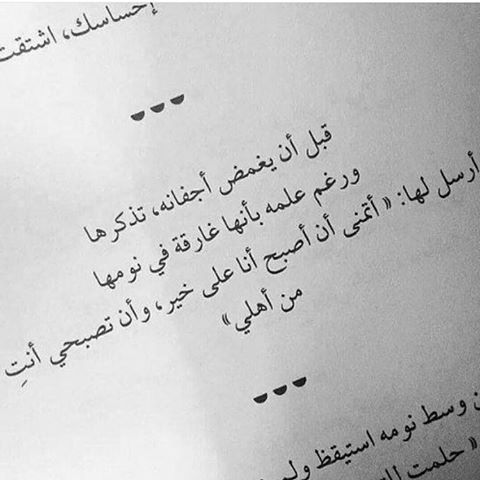 إحساسك، اشتقت
قبل أن يغمض أجفانه، تذكرها
ورغم علمه بأنها غارقة في نومها
أرسل لها: « أتمنى أن أصبح أنا على خير، وأن تصبحي أنتِ
من أهلي »
وسط نومه استيقظ ولم
« حلمت